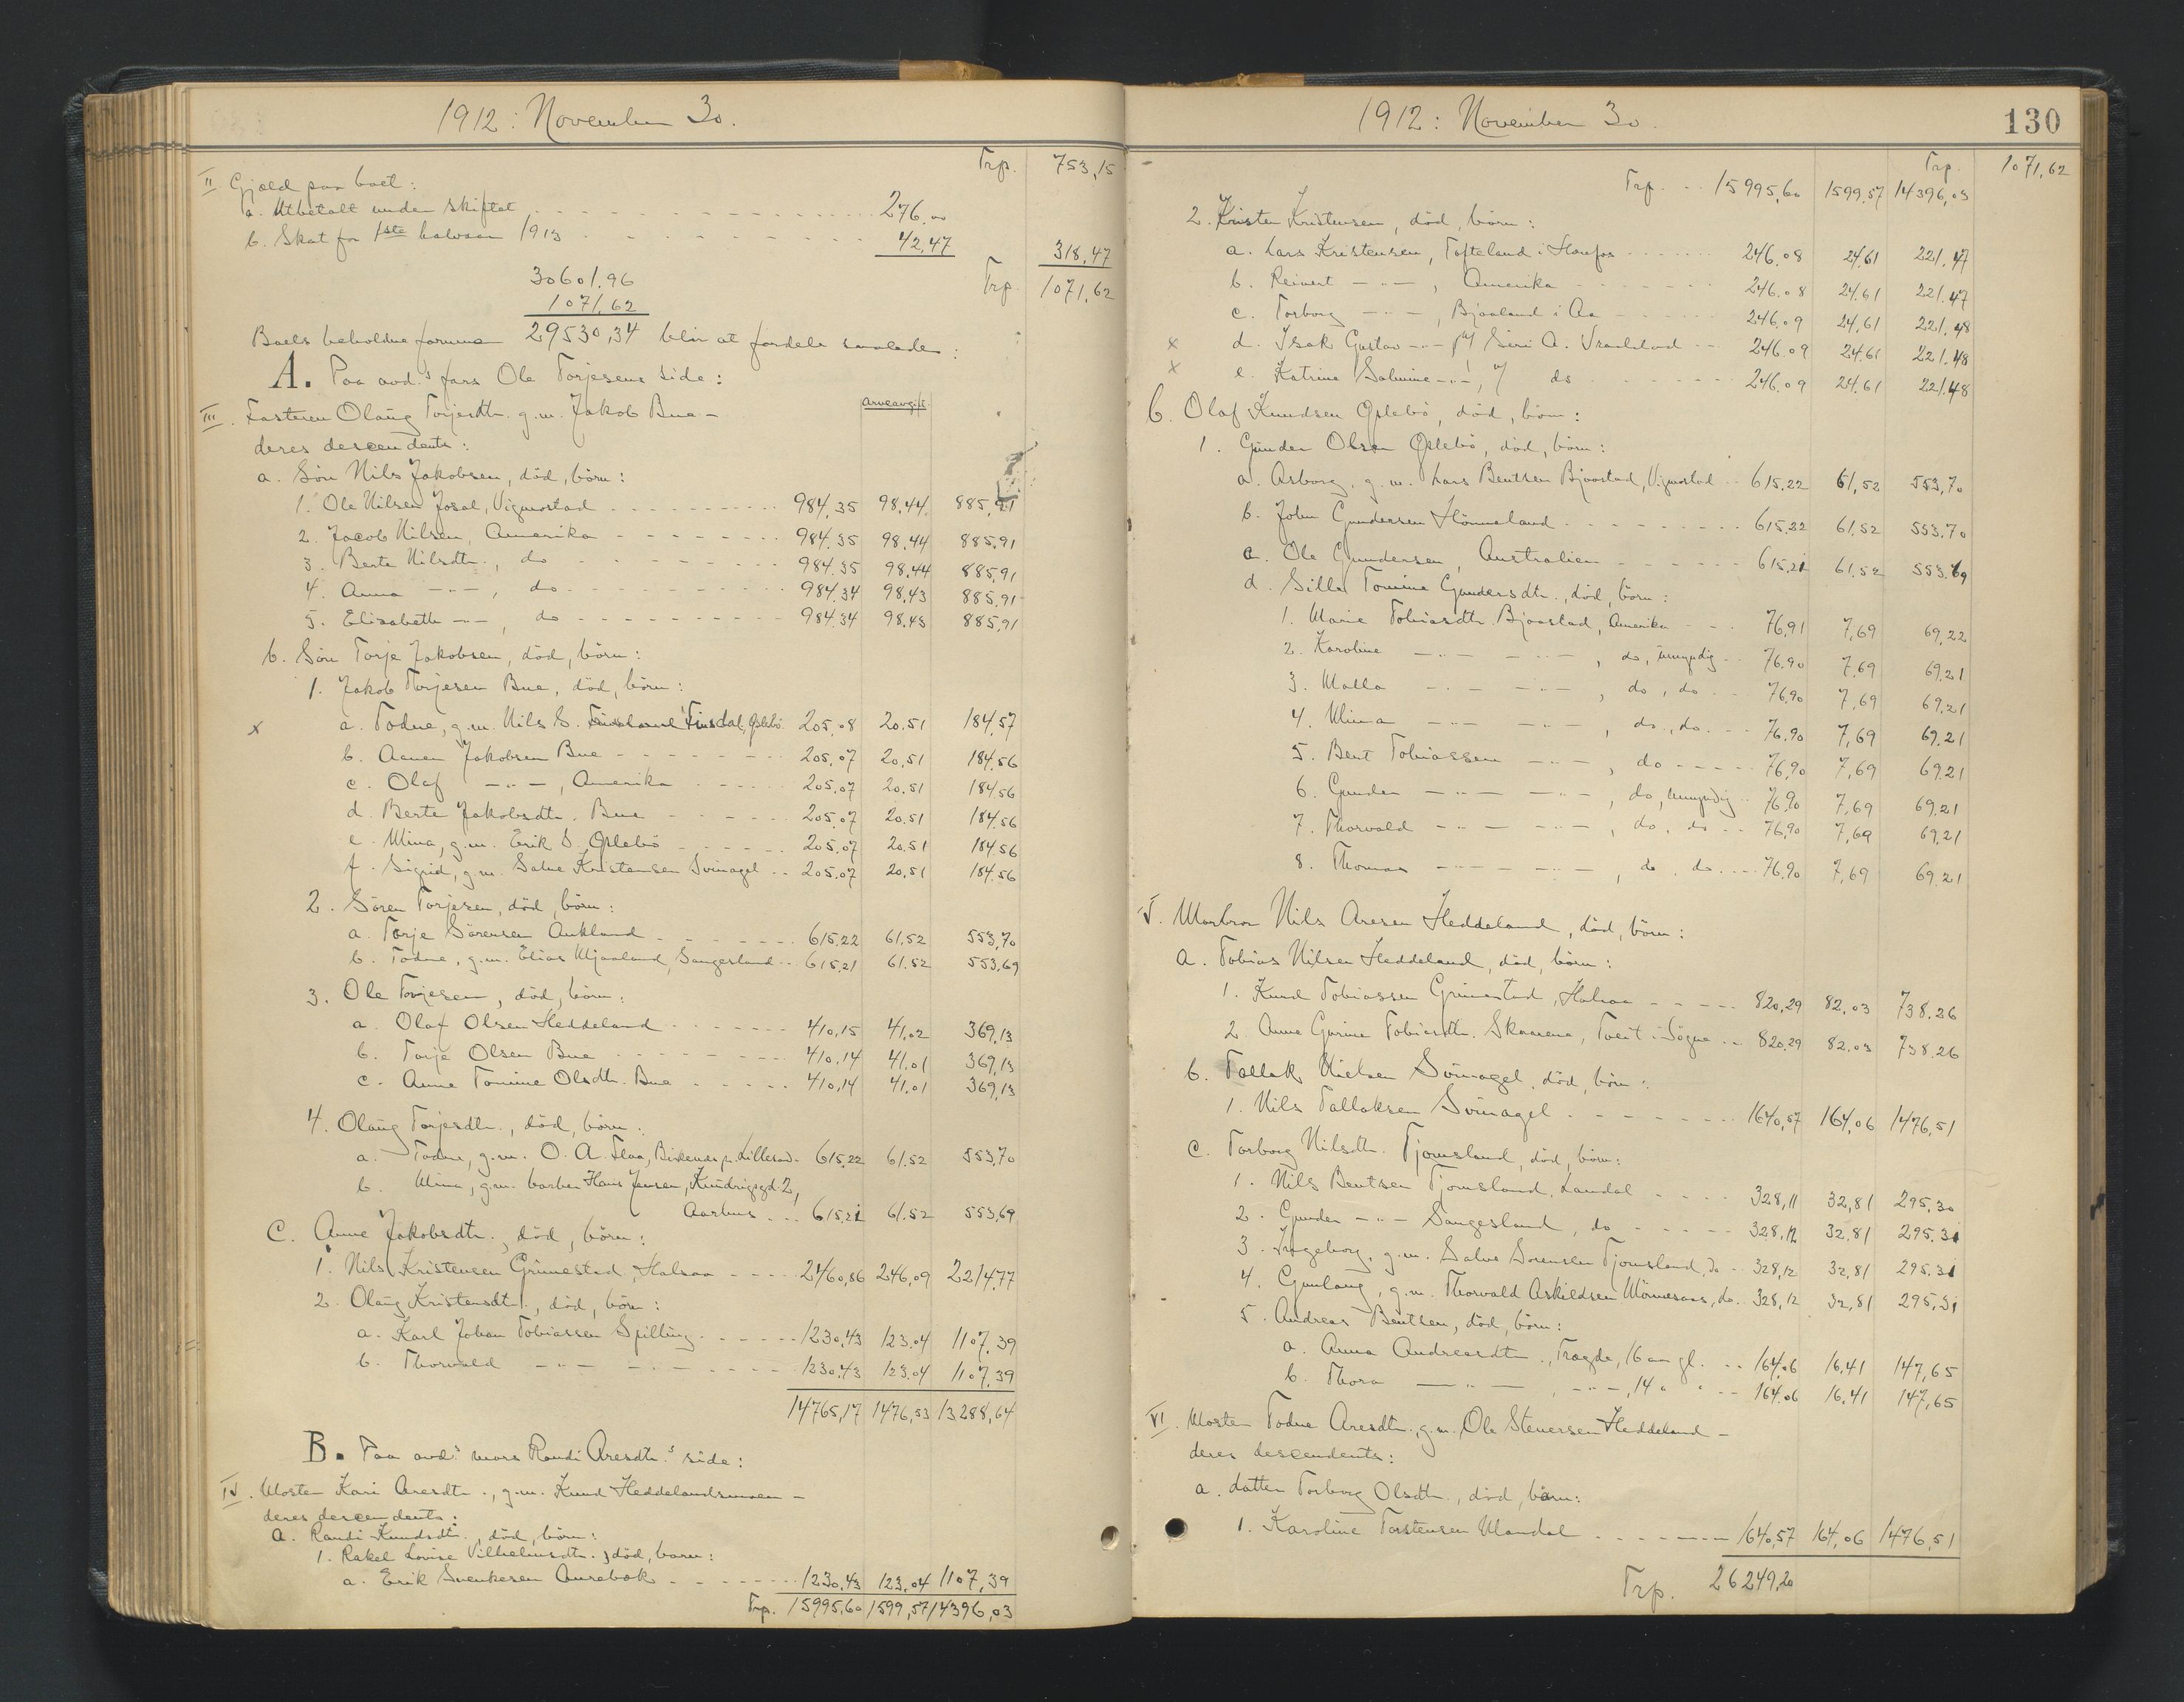 1912: November 30.
Trp. 753,15
II Gjæld paa boet:
a. Utbetalt under skiftet 276.00
b. Skat for 1ste halvaar 1913 42,47 318,47
30601.96 Trp. 1071,62
1071,62
Boets beholdne formue 29530,34 blir at fordele saaledes:
A. Paa avd.s fars Ole Torjesens side:
III. Fasteren Olaug Torjesdtr. g.m. Jakob Bue - arveavgift.
deres descendents:
a. Søn Nils Jakobsen, död, börn:
1. Ole Nilsen Josal, Vigmostad 984,35 98,44 885,91
2. Jacob Nilsen, Amerika 984,35 98,44 885,91
3. Berte Nilsdtr., do 984,35 98,44 885,91
4. Anna -"-, do 984,34 98,43 885,91
5. Elisabeth -"-, do 984,34 98,43 885,91
b. Søn Torje Jakobsen, död, börn:
1. Jakob Torjesen Bue, död, börn:
x a. Todne, g.m. Nils S. Finsdal, Øslebö 205,08 20,51 184,57
b. Aanen Jakobsen Bue 205,07 20,51 184,56
c. Olaf -"-, Amerika 205,07 20,51 184,56
d. Berte Jakobsdtr. Bue 205,07 20,51 184,56
e. Mina, g.m. Erik S. Øslebö 205,07 20,51 184,56
f. Sigrid, g.m. Salve Kristensen Svinagel 205,07 20,51 184,56
2. Sören Torjesen, död, börn:
a. Torje Sörensen Aukland 615,22 61,52 553,70
b. Todne, g.m. Elias Mjaaland, Saugesland 615,21 61,52 553,69
3. Ole Torjesen, död, börn:
a. Olaf Olsen Heddeland 410,15 41,02 369,13
b. Torje Olsen Bue 410,14 41,01 369,13
c. Anne Tomine Olsdtr. Bue 410,14 41,01 369,13
4. Olaug Torjesdtr., död, börn:
a. Todne, g.m. O. A. Flaa, Birkenes p. Lillesand 615,22 61,52 553,70
b. Mina, g.m. barber Hans Jensen, 2,
Aarhus 615,21 61,52 553,69
C. Anne Jakobsdtr., död, börn:
1. Nils Kristensen Grimestad, Halsaa 2460,86 246,09 2214,77
2. Olaug Kristensdtr., död, börn:
a. Karl Johan Tobiassen Spilling 1230,43 123,04 1107,39
b. Thorvald -"- -"- 1230,43 123,04 1107,39
14765,17 1476,53 13288,64
B. Paa avd.s mors Randi Aresdtr.s side:
IV. Moster Kari Aresdtr., g.m. Knud Heddelandsmoen -
deres descendents:
a. Randi Knudsdtr., död, börn:
1. Rakel Lovise Vilhelmsdtr., död, barn:
a. Erik Svenkesen Aurebæk 1230,43 123,04 1107,39
Trp. 15995,60 1599,57 14396,03
1912: November 30.
130
Trp. 1071,62
Trp. 15995,60 1599,57 14396,03
2. Kristen Kristensen, död, börn:
a. Lars Kristensen, Tofteland i 246,08 24,61 221,47
b. Reinert -"-, Amerika 246,08 24,61 221,47
c. Torborg -"-, Bjaaland i Aa 246,09 24,61 221,48
x d. Isak Gustav -"- 246,09 24,61 221,48
x e. Katrine Salmine -"-, do 246,09 24,61 221,48
b. Olaf Knudsen Øslebö, död, börn:
1. Gunder Olsen Øslebö, död, börn:
a. Asborg, g.m. Lars Bentsen Bjaastad, Vigmostad 615,22 61,52 553,70
b. John Gundersen Hönneland 615,22 61,52 553,70
c. Ole Gundersen, Australien 615,21 61,52 553,69
d. Sille Tomine Gundersdtr., död, börn:
1. Marie Tobiasdtr. Bjaastad, Amerika 76,91 7,69 69,22
2. Karoline -"- -"-, do, umyndig 76,90 7,69 69,21
3. Malla -"- -"-, do, do 76,90 7,69 69,21
4. Mina -"- -"-, do, do 76,90 7,69 69,21
5. Bent Tobiassen -"-, do 76,90 7,69 69,21
6. Gunder -"- -"-, do, umyndig 76,90 7,69 69,21
7. Thorvald -"- -"-, do, do 76,90 7,69 69,21
8. Thomas -"- -"-, do, do 76,90 7,69 69,21
V. Morbror Nils Aresen Heddeland, död, börn:
a. Tobias Nilsen Heddeland, död, börn:
1. Knud Tobiassen Grimestad, Halsaa 820,29 82,03 738,26
2. Anne Gurine Tobiasdtr. Tveit i Søgne 820,29 82,03 738,26
b. Tallak Nielsen Svinagel, död, börn:
1. Nils Tallaksen Svinagel 1640,57 164,06 1476,51
c. Torborg Nilsdtr. Tjomsland, död, börn:
1. Nils Bentsen Tjomsland, Laudal 328,11 32,81 295,30
2. Gunder -"- Saugesland, do 328,12 32,81 295,31
3. Ingeborg, g.m. Salve Sorensen Tjomsland, do 328,12 32,81 295,31
4. Gunlaug, g.m. Thorvald Askildsen do. 328,12 32,81 295,31
5. Andreas Bentsen, död, börn:
a. Anna Andreasdtr., Tregde, 16 aar gl. 164,06 16,41 147,65
b. Thora -"-, -"-, 14 " " 164,06 16,41 147,65
VI. Moster Todne Aresdtr., g.m. Ole Stenersen Heddeland -
deres descendents:
a. datter Torborg Olsdtr., död, barn:
1. Karoline Torstensen Mandal 1640,57 164,06 1476,51
Trp. 26249,20